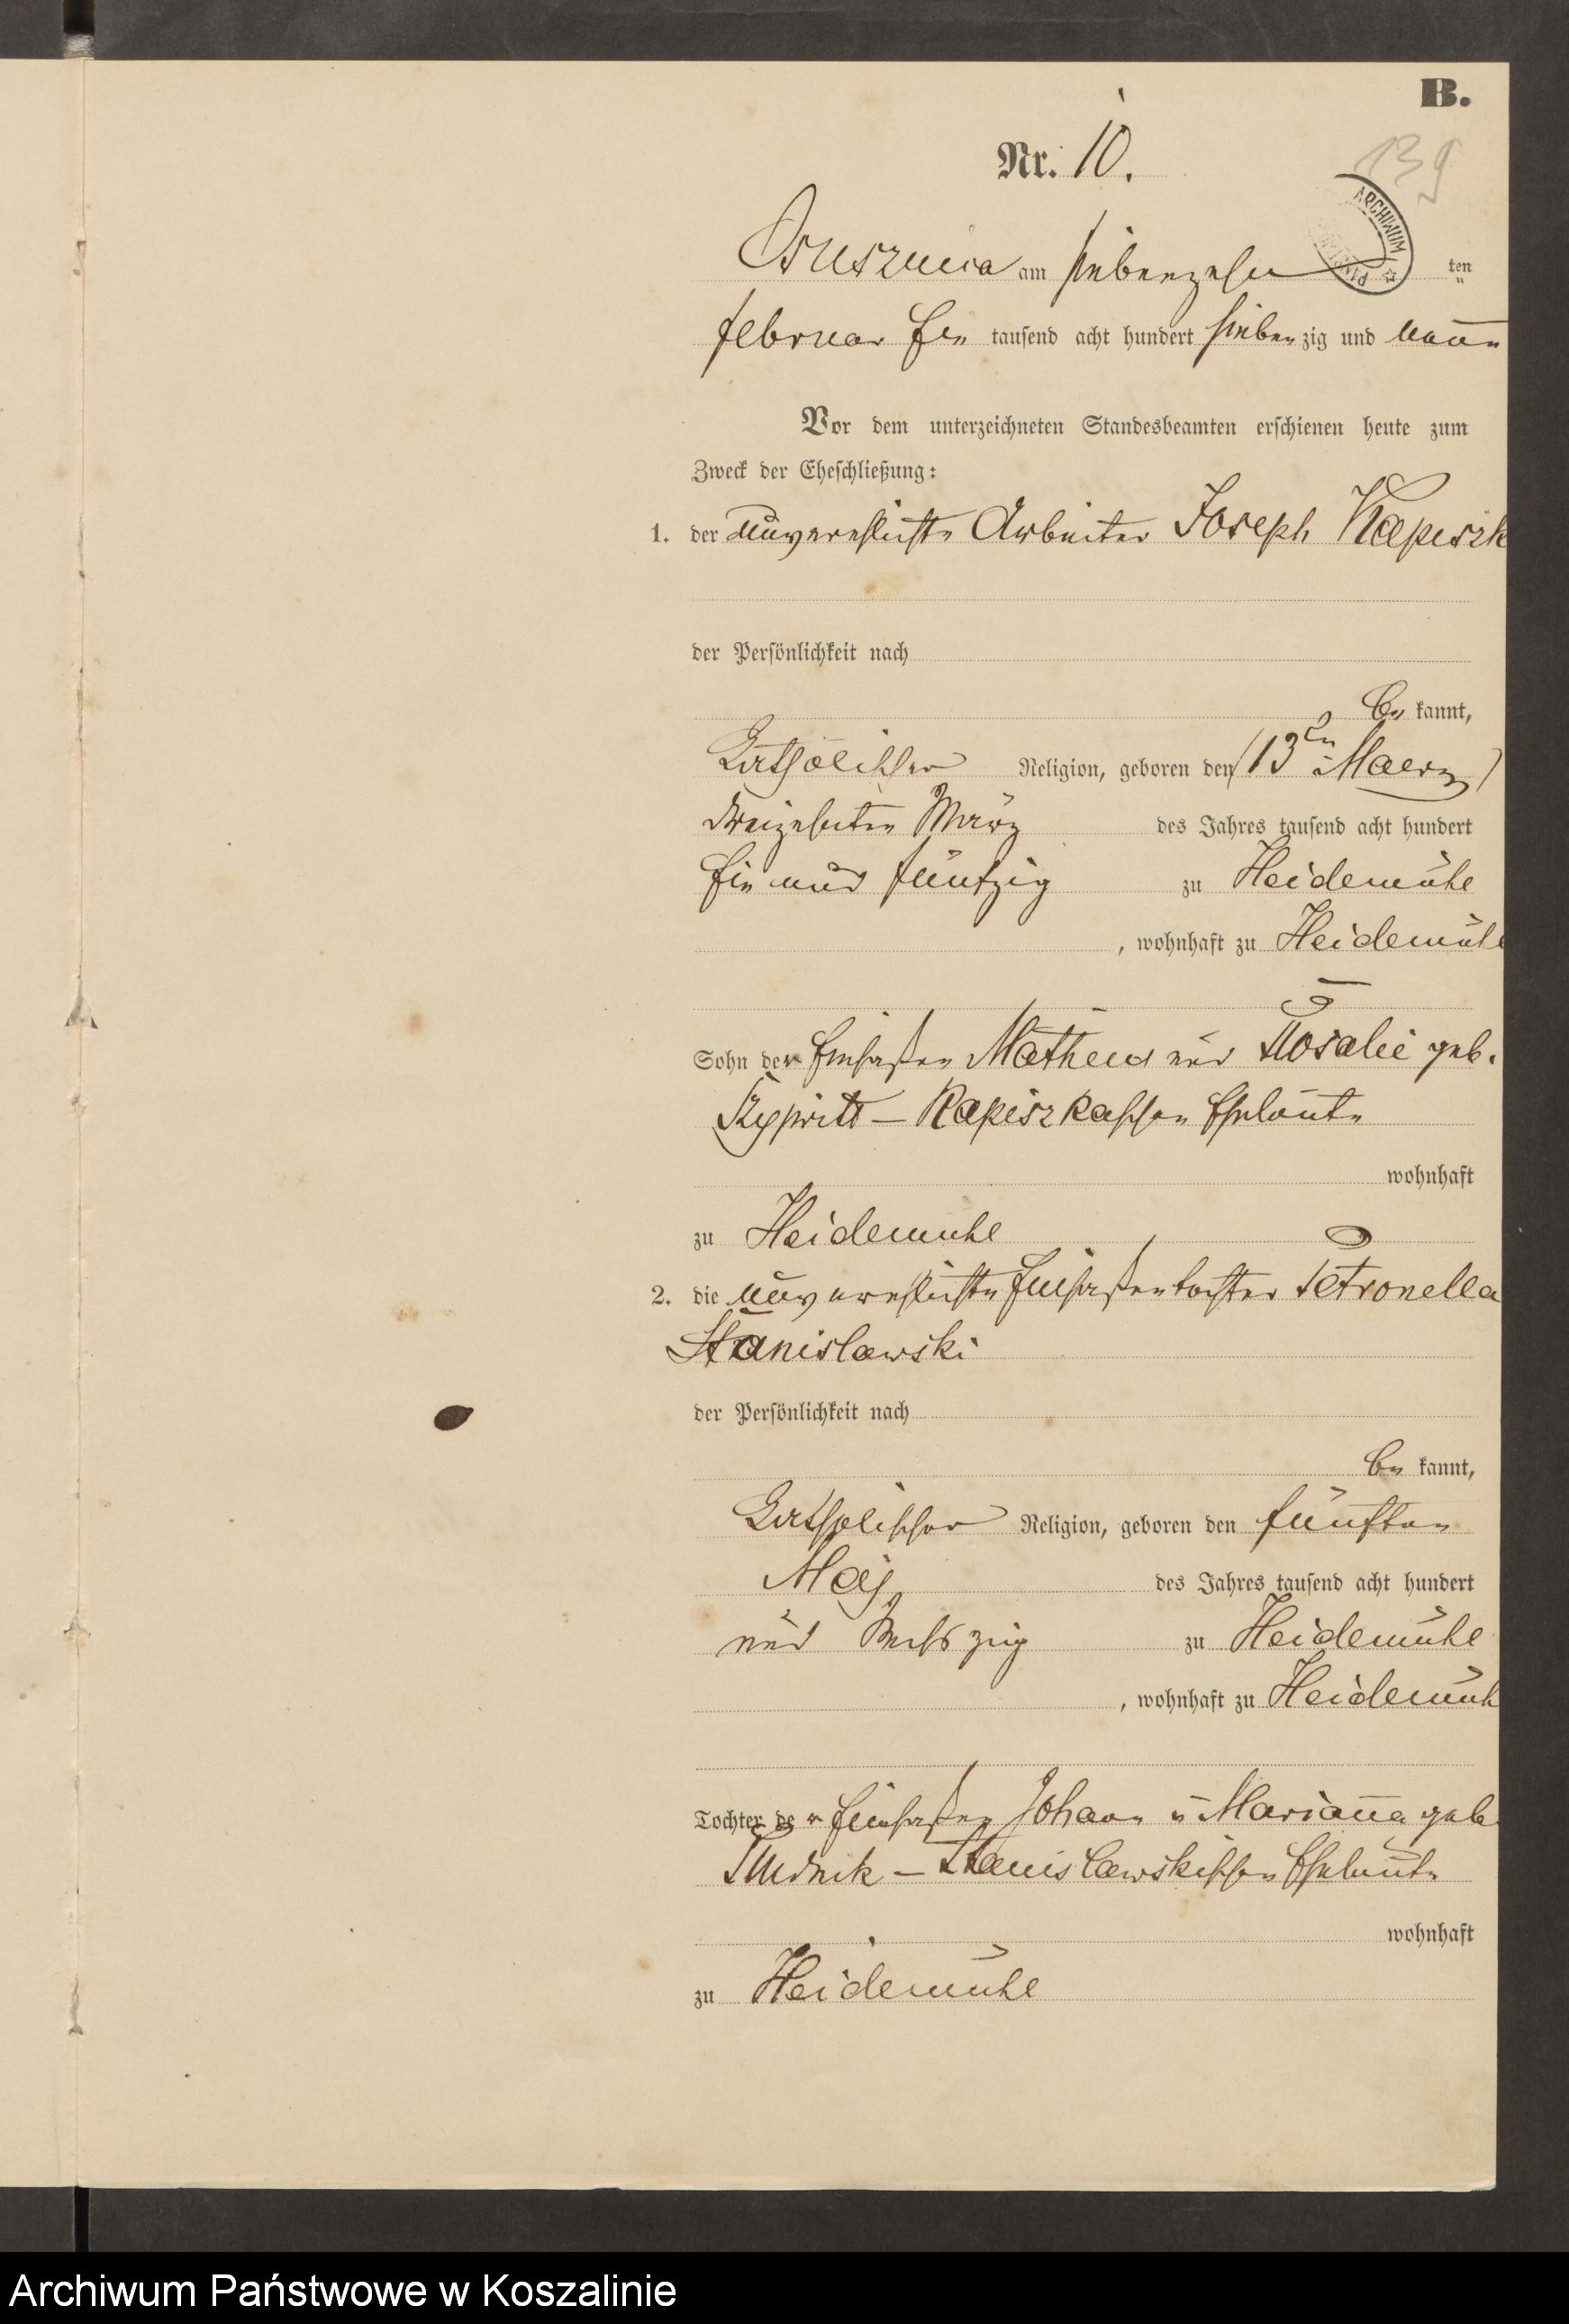 B.
Nr. 10.
139
ARCHIWUM
Osuszniça am siebenzehn ten
Februar Ein tausend acht hundert sieben zig und neun
Vor dem unterzeichneten Standesbeamten erschienen heute zum
Zweck der Eheschließung:
1. der unverehlichte Arbeiter Joseph Kapiszk
der Persönlichkeit nach
be kannt,
katholischer Religion, geboren den (13ten Maerz)
dreizehnten März des Jahres tausend acht hundert
ein und fünfzig zu Heidemühle
, wohnhaft zu Heidemühl
Sohn der Einsaßen Matheus und Rosalie geb.
– Kapiszkaschen Eheleute
wohnhaft
zu Heidemühle
2. die unverehlichte Einsaßentochter Petronella
Stanislawski
der Persönlichkeit nach
be kannt,
katholischer Religion, geboren den fünften
Maj des Jahres tausend acht hundert
und sechszig zu Heidemühle
, wohnhaft zu Heidemühl
Tochter der Einsaßen Johann u Marianna geb
Rudnik – Stanislawskischen Eheleute
wohnhaft
zu Heidemühle
Archiwum Państwowe w Koszalinie